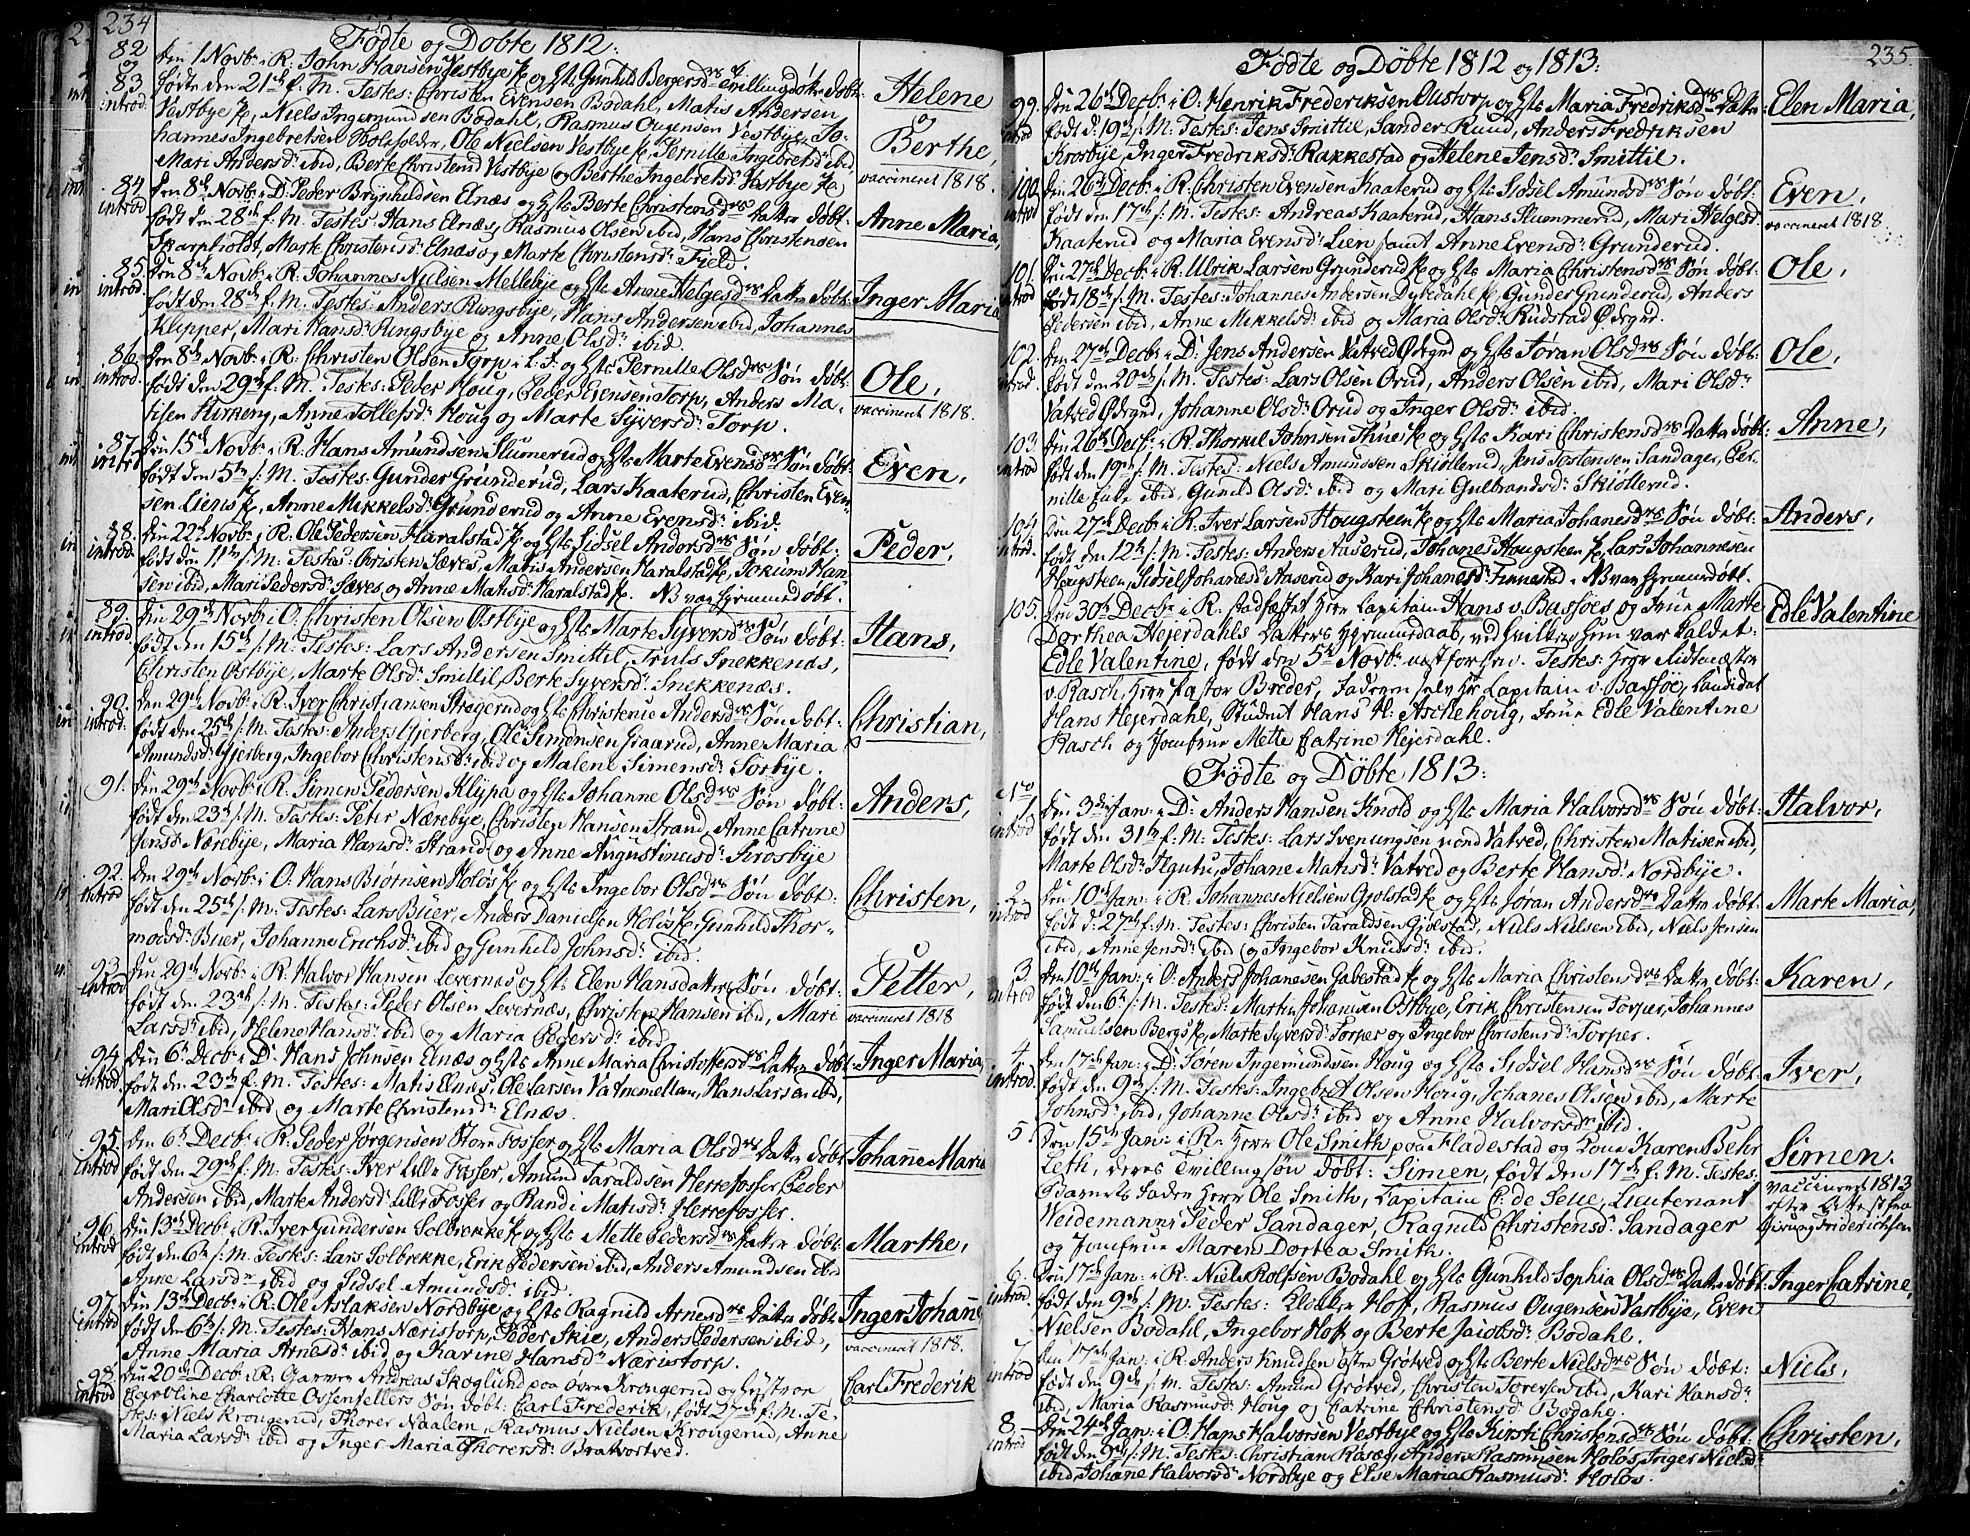 234
Fødte og Døbte 1812:
82
&
83
introd:
den 1 Novb: i R: John Hansen Vestbye og H: Gunhild Bergersd: Tvillingdøtre døbt:
fødte den 21 f. M. Testes: Christen Evensen Bodahl, Matis Andersen
Vestbye, Niels Ingemundsen Bodahl, Rasmus Ougensen Vestbye, Jo-
hannes Ingebretsen, Ole Nielsen Vestbye, Pernille Ingebretsd: ibid,
Mari Andersd: ibid, Berte Christensd Vestbye og Berthe Ingebretsd: Vestbye
Helene
&
Berthe,
vaccineret 1818.
84
introd
den 8 Novb: i D: Peder Brynhildsen Elnæs og H: Berte Christensd: Datter døbt:
født den 28 f. M. Testes: Hans Elnæs, Rasmus Olsen ibid, Hans Christensen
Skarpholdt, Marte Christensd: Elnæs og Marte Christensd: Field.
Anne Maria,
85.
introd.
den 8 Novb: i R: Johannes Nielsen Mellebye og H: Anne Helgesd: Datter døbt:
født den 28 f. M. Testes: Anders Rungsbye, Hans Andersen ibid, Johannes
Klypper, Mari Hansd: Rungsbye og Anne Olsd: ibid.
Inger Maria
86.
introd.
den 8 Novb: i R: Christen Olsen Torp og H: Pernille Olsd: Søn døbt:
født den 29 f. M. Testes: Peder Houg, Peder Evensen Torp, Anders Ma-
tisen Kirkeng, Anne Tollefsd: Houg og Marte Syversd: Torp.
Ole,
vaccineret 1818.
87.
introd
den 15 Novb: i R: Hans Amundsen Slumerud og H: Marte Evensd: Søn døbt:
født den 5 f. M. Testes: Gunder Grunderud, Lars Kaaterud, Christen Even-
sen Lien, Anne Mikkelsd: Grunderud og Anne Evensd: ibid.
Even,
88.
introd.
den 22 Novb: i R: Ole Pedersen Haralstad og H: Sidsel Andorsd: Søn døbt:
født den 11 f. M. Testes: Christen Sæves, Matis Andersen Haralstad, Jokum Han-
sen ibid, Mari Pedersd: Sæves og Anne Matisd: Haralstad. NB var hjemmedøbt.
Peder,
89.
introd.
den 29 Novb: i O: Christen Olsen Østbye og H: Marte Syversd: Søn døbt:
født den 15 f. M. Testes: Lars Andersen Smittil, Truls Snekkenæs,
Christen Østbye, Marte Olsd: Smittil, Berte Syversd: Snekkenæs.
Hans,
90.
introd.
den 29 Novb: i R: Iver Christiansen og H: Christense Andersd: Søn døbt:
født den 25 f. M. Testes: Anders Gjerberg, Ole Simonsen Graarud, Anne Maria
Amundsd: Gjerberg, Ingebor Christensd: ibid og Malene Simensd: Sørbye.
Christian,
91.
den 29 Novb: i R: Simen Pedersen Klypa og H: Johanne Olsd: Søn døbt:
født den 23 f. M. Testes: Peter Nærebye, Christen Hansen Strand, Anne Catrine
Jensd: Nærebye, Maria Hansd: Strand og Anne Augustinusd: Krosbye
Anders,
92.
introd
den 29 Novb: i O: Hans Biørnsen Holøs og H: Ingebor Olsd: Søn døbt:
født den 25 f. M. Testes: Lars Buer, Anders Danielsen Holøs, Gunhild Thor-
modsd: Buer, Johanne Erichsd: ibid og Gunhild Johnsd: ibid.
Christen,
93
introd
den 29 Novb: i R: Halvor Hansen Levernæs og H: Elen Hansdatters Søn døbt:
født den 23 f. M. Testes: Peder Olsen Levernæs, Christen Hansen ibid, Mari
Larsd: ibid, Helene Hansd: ibid og Maria Pedersd: ibid.
Petter,
vaccineret 1818
94
introd.
den 6 Decb: i D: Hans Johnsen Elnæs og H: Anne Maria Christoffersd: Datter døbt:
født den 23 f. M. Testes: Matis Elnæs, Ole Larsen Vatnemellem, Hans Larsen ibid,
Mari Olsd: ibid og Marte Christensd: Elnæs.
Inger Maria,
95.
introd
den 6 Decb: i R: Peder Jørgensen Store Fosser og H: Maria Olsd: Datter døbt
født den 29 f. M. Testes: Iver Lille Fosser, Amund Taraldsen Herrefosser, Peder
Andersen ibid, Marte Andersd: Lille Fosser og Randi Matisd: Herrefosser.
Johañe Maria
96.
introd
den 13 Decb: i R: Iver Gundersen Solbrekke og H: Mette Pedersd: Datter døbt:
født den 6 f. M. Testes: Lars Solbrekke, Erik Pedersen ibid, Anders Amundsen ibid
Anne Larsd: ibid og Sidsel Amundsd: ibid.
Marthe,
97.
introd
den 13 Decb: i R: Ole Aslaksen Nordbye og H: Ragnild Arnesd: Datter døbt:
født den 6 f. M. Testes: Hans Næristorp, Peder Skie, Anders Pedersen ibid,
Anne Maria Arnesd: ibid og Karine Hansd: Næristorp.
Inger Johañe
vaccineret 1818.
98.
introd
den 20 Decb: i R: Garver Andreas Skoglund paa øvre Krougerud og Hustrue
Caroline Charlotte Ovsenfellers Søn døbt: Carl Frederik, født 27 f. M. Te-
stes: Niels Krougerud, Thorer Naalem, Rasmus Nielsen Krougerud, Anne
Maria Larsd: ibid og Inger Maria Thorersd: Bratvortved.
Carl Frederik
235
Fødte og Døbte 1812 og 1813:
99.
introd
den 26 Decb: i O: Henrik Frederiksen Oustorp og H: Maria Fredriksd: Datter
født d. 19 f. M. Testes: Jens Smittil, Sander Ruud, Anders Fredriksen
Krosbye, Inger Fredriksd: Rakkestad og Helene Jensd: Smittil.
Elen Maria,
100
introd
den 26 Decb: i R: Christen Evensen Kaaterud og H: Sidsel Amundsd: Søn døbt:
født den 17 f. M. Testes: Andreas Kaaterud, Hans Slummerud, Mari Helgesd:
Kaaterud og Maria Evensd: Lien samt Anne Evensd: Grunderud.
Even,
vaccineret 1818
101.
introd
den 27 Decb: i R: Ulrik Larsen Grunderud og H: Maria Christensd: Søn døbt:
født 18 f. M. Testes: Johannes Andersen Dybedahl, Gunder Grunderud, Anders
Pedersen ibid, Anne Mikkelsd: ibid og Maria Olsd: Rudstad Ødegrd.
Ole,
102.
introd.
den 27 Decb: i D: Jens Andersen Vatved Ødegrd og H: Jøran Olsd: Søn døbt:
født den 20 f. M. Testes: Lars Olsen Orud, Anders Olsen ibid, Mari Olsd:
Vatved Ødegrd, Johanne Olsd: Orud og Inger Olsd: ibid.
Ole,
103.
introd
den 26 Decb: i R: Thorkel Johnsen Thue og H: Kari Christensd: Datter døbt:
født den 19 f. M. Testes: Niels Amundsen Skiøllerud, Jens Tostensen Sandager, Per-
nille ibid, Gunild Olsd: ibid og Mari Gulbrandsd: Skiøllerud.
Anne,
104
introd.
den 27 Decb: i R: Iver Larsen Hougsteen og H: Maria Johanesd: Søn døbt:
født den 12 f. M. Testes: Anders Aaserud, Johanes Hougsteen, Lars Johannesen
Hougsteen, Sidsel Johanesd: Aaserud og Kari Johanesd: Finnestad. NB var hjemmedøbt.
Anders,
105.
den 30 Decb: i R. stadfæstet Herr Capitain Hans v. Bassøes og Frue Marte
Dorthea Hejerdahls Datters Hjemmedaab, ved hvilken hun var kaldet:
Edle Valentine, født den 5 Novb: næstforhen. Testes: Herr Ritmester
v. Rasch, Herr Pastor Breder, Faderen selv Hr Capitain v. Bassøe, Candidat
Hans Hejerdahl, Student Hans H: Aschehoug, Frue Edle Valentine
Rasch og Jomfrue Mette Catrine Hejerdahl.
Edle Valentine
Fødte og Døbte 1813:
No
1
introd
den 3 Jan: i D: Anders Hansen Knold og H: Maria Halvorsd: Søn døbt:
født den 31 f. M. Testes: Lars Svenungsen Vatved, Christen Matisen ibid,
Marte Olsd: Agutu, Johane Matisd: Vatved og Berte Hansd: Nordbye.
Halvor,
2
introd
den 10 Jan: i R. Johannes Nielsen Gjølstad og H: Jøran Andersd: Datter døbt:
født d. 27 f. M. Testes: Christen Taraldsen Gjølstad, Niels Nielsen ibid, Niels Jensen
ibid, Anne Jensd: ibid og Ingebor Knudsd: ibid.
Marte Maria,
3
introd
den 10 Jan: i O: Anders Johanesen Gabestad og H: Maria Christensd: Datter døbt:
født den 6 f. M. Testes: Martin Johansen Østbye, Erik Christensen Torper, Johannes
Samuelsen Berg, Marte Syversd: Torper og Ingebor Christensd: Torper.
Karen,
4
introd.
den 17 Jan: i D: Søren Ingemundsen Houg og H: Sidsel Hansd: Søn døbt
født den 9 f. M. Testes: Ingebret Olsen Houg, Johanes Olsen ibid, Marte
Johnsd: ibid, Johanne Olsd: ibid og Anne Halvorsd: ibid.
Iver,
5.
den 15 Jan: i R: Herr Ole Smith paa Fladestad og Kone Karen Behr
Leth, deres Tvillingsøn døbt: Simen, født den 17 f. M. Testes:
Barnets Fader Herr Ole Smith, Capitain C: de Seue, Lieutenant
Weidemann, Peder Sandager, Ragnild Christensd: Sandager
og Jomfrue Maren Dortea Smith.
Simen.
vaccineret 1813
efter Attest fra
Friderichsen
6.
introd.
den 17 Jan: i R: Niels Rolfsen Bodahl og H: Gunhild Sophia Olsd: Datter døbt
født den 9 f. M. Testes: Klokker Hoff, Rasmus Ougensen Vestbye, Even
Nielsen Bodahl, Ingebor Hoff og Berte Jacobsd: Bodahl.
Inger Catrine,
7.
introd
den 17 Jan: i R. Anders Knudsen østre Grøtved og H: Berte Nielsd: Søn døbt:
født den 9 f. M. Testes: Amund Grøtved, Christen Torersen ibid, Kari Hansd:
ibid, Maria Rasmusd: Houg og Catrine Christensd: Bodahl.
Niels,
8.
introd
den 24 Jan: i O: Hans Halvorsen Vestbye og H: Kirsti Christensd: Søn døbt:
født den 9 f. M. Testes: Christian Raaseg, Anders Rasmusen Holøs, Inger Nielsd:
ibid, Johane Halvorsd: Nordbye og Else Maria Rasmusd: Holøs.
Christen,